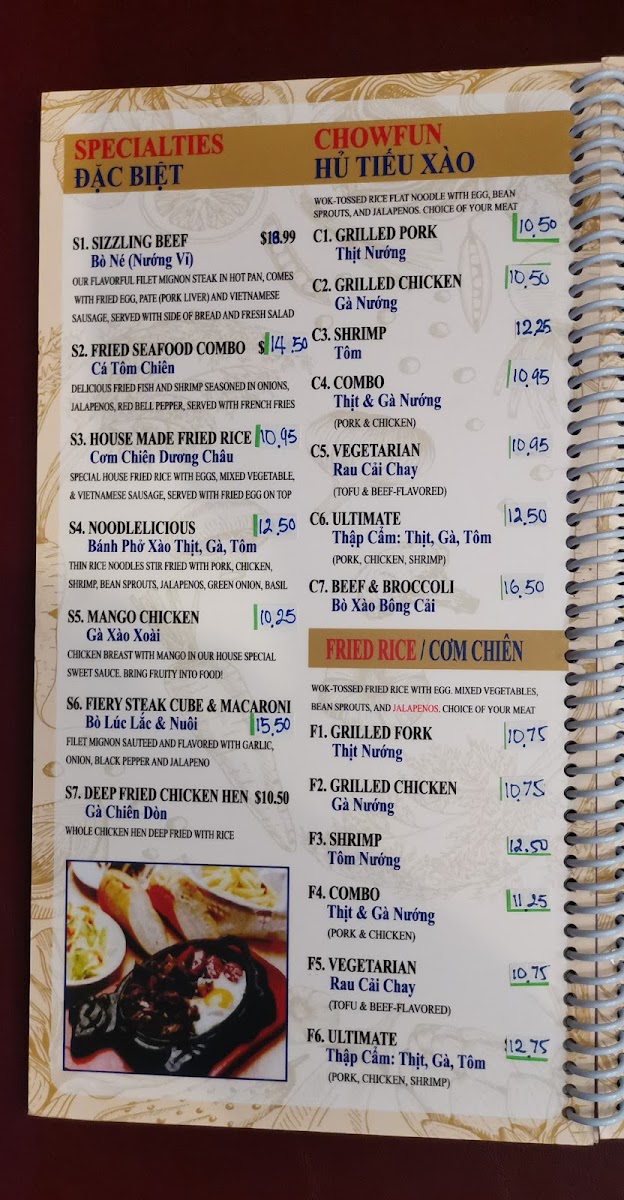 SPECIALTIES
ĐẶC BIỆT
S1. SIZZLING BEEF $18.99
Bò Né (Nướng Vĩ)
OUR FLAVORFUL FILET MIGNON STEAK IN HOT PAN, COMES
WITH FRIED EGG, PATE (PORK LIVER) AND VIETNAMESE
SAUSAGE, SERVED WITH SIDE OF BREAD AND FRESH SALAD
S2. FRIED SEAFOOD COMBO $14.50
Cá Tôm Chiên
DELICIOUS FRIED FISH AND SHRIMP SEASONED IN ONIONS,
JALAPENOS, RED BELL PEPPER, SERVED WITH FRENCH FRIES
S3. HOUSE MADE FRIED RICE 10.95
Cơm Chiên Dương Châu
SPECIAL HOUSE FRIED RICE WITH EGGS, MIXED VEGETABLE,
& VIETNAMESE SAUSAGE, SERVED WITH FRIED EGG ON TOP
S4. NOODLELICIOUS 12.50
Bánh Phở Xào Thịt, Gà, Tôm
THIN RICE NOODLES STIR FRIED WITH PORK, CHICKEN,
SHRIMP, BEAN SPROUTS, JALAPENOS, GREEN ONION, BASIL
S5. MANGO CHICKEN 10.25
Gà Xào Xoài
CHICKEN BREAST WITH MANGO IN OUR HOUSE SPECIAL
SWEET SAUCE. BRING FRUITY INTO FOOD!
S6. FIERY STEAK CUBE & MACARONI
Bò Lúc Lắc & Nuôi 15.50
FILET MIGNON SAUTEED AND FLAVORED WITH GARLIC,
ONION, BLACK PEPPER AND JALAPENO
S7. DEEP FRIED CHICKEN HEN $10.50
Gà Chiên Dòn
WHOLE CHICKEN HEN DEEP FRIED WITH RICE
CHOWFUN
HỦ TIẾU XÀO
WOK-TOSSED RICE FLAT NOODLE WITH EGG, BEAN
SPROUTS, AND JALAPENOS. CHOICE OF YOUR MEAT
C1. GRILLED PORK 10.50
Thịt Nướng
C2. GRILLED CHICKEN 10.50
Gà Nướng
C3. SHRIMP 12.25
Tôm
C4. COMBO 10.95
Thịt & Gà Nướng
(PORK & CHICKEN)
C5. VEGETARIAN 10.95
Rau Cải Chay
(TOFU & BEEF-FLAVORED)
C6. ULTIMATE 12.50
Thập Cẩm: Thịt, Gà, Tôm
(PORK, CHICKEN, SHRIMP)
C7. BEEF & BROCCOLI 16.50
Bò Xào Bông Cải
FRIED RICE / CƠM CHIÊN
WOK-TOSSED FRIED RICE WITH EGG. MIXED VEGETABLES,
BEAN SPROUTS, AND JALAPENOS. CHOICE OF YOUR MEAT
F1. GRILLED FORK 10.75
Thịt Nướng
F2. GRILLED CHICKEN 10.75
Gà Nướng
F3. SHRIMP 12.50
Tôm Nướng
F4. COMBO 11.25
Thịt & Gà Nướng
(PORK & CHICKEN)
F5. VEGETARIAN 10.75
Rau Cải Chay
(TOFU & BEEF-FLAVORED)
F6. ULTIMATE 12.75
Thập Cẩm: Thịt, Gà, Tôm
(PORK, CHICKEN, SHRIMP)